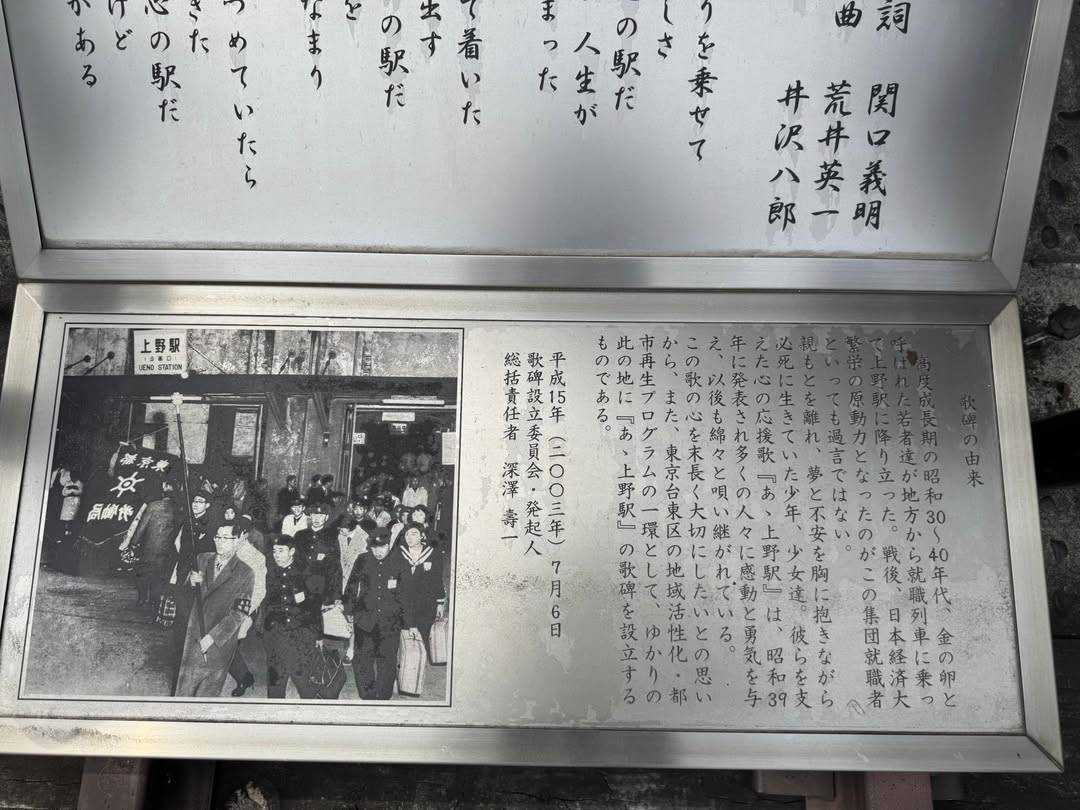 詞　関口義明
曲　荒井英一
井沢八郎
りを乗せて
しさ
の駅だ
人生が
まった
て着いた
出す
の駅だ
を
なまり
つめていたら
きた
心の駅だ
けど
がある
歌碑の由来
高度成長期の昭和30～40年代、金の卵と
呼ばれた若者達が地方から就職列車に乗っ
て上野駅に降り立った。戦後、日本経済大
繁栄の原動力となったのがこの集団就職者
といっても過言ではない。
親もとを離れ、夢と不安を胸に抱きながら
必死に生きていた少年、少女達。彼らを支
えた心の応援歌『あゝ上野駅』は、昭和39
年に発表され多くの人々に感動と勇気を与
え、以後も綿々と唄い継がれている。
この歌の心を末長く大切にしたいとの思い
から、また、東京台東区の地域活性化・都
市再生プログラムの一環として、ゆかりの
此の地に『あゝ上野駅』の歌碑を設立する
ものである。
平成15年（二〇〇三年）7月6日
歌碑設立委員会・発起人
総括責任者　深澤　壽一
上野駅
UENO STATION